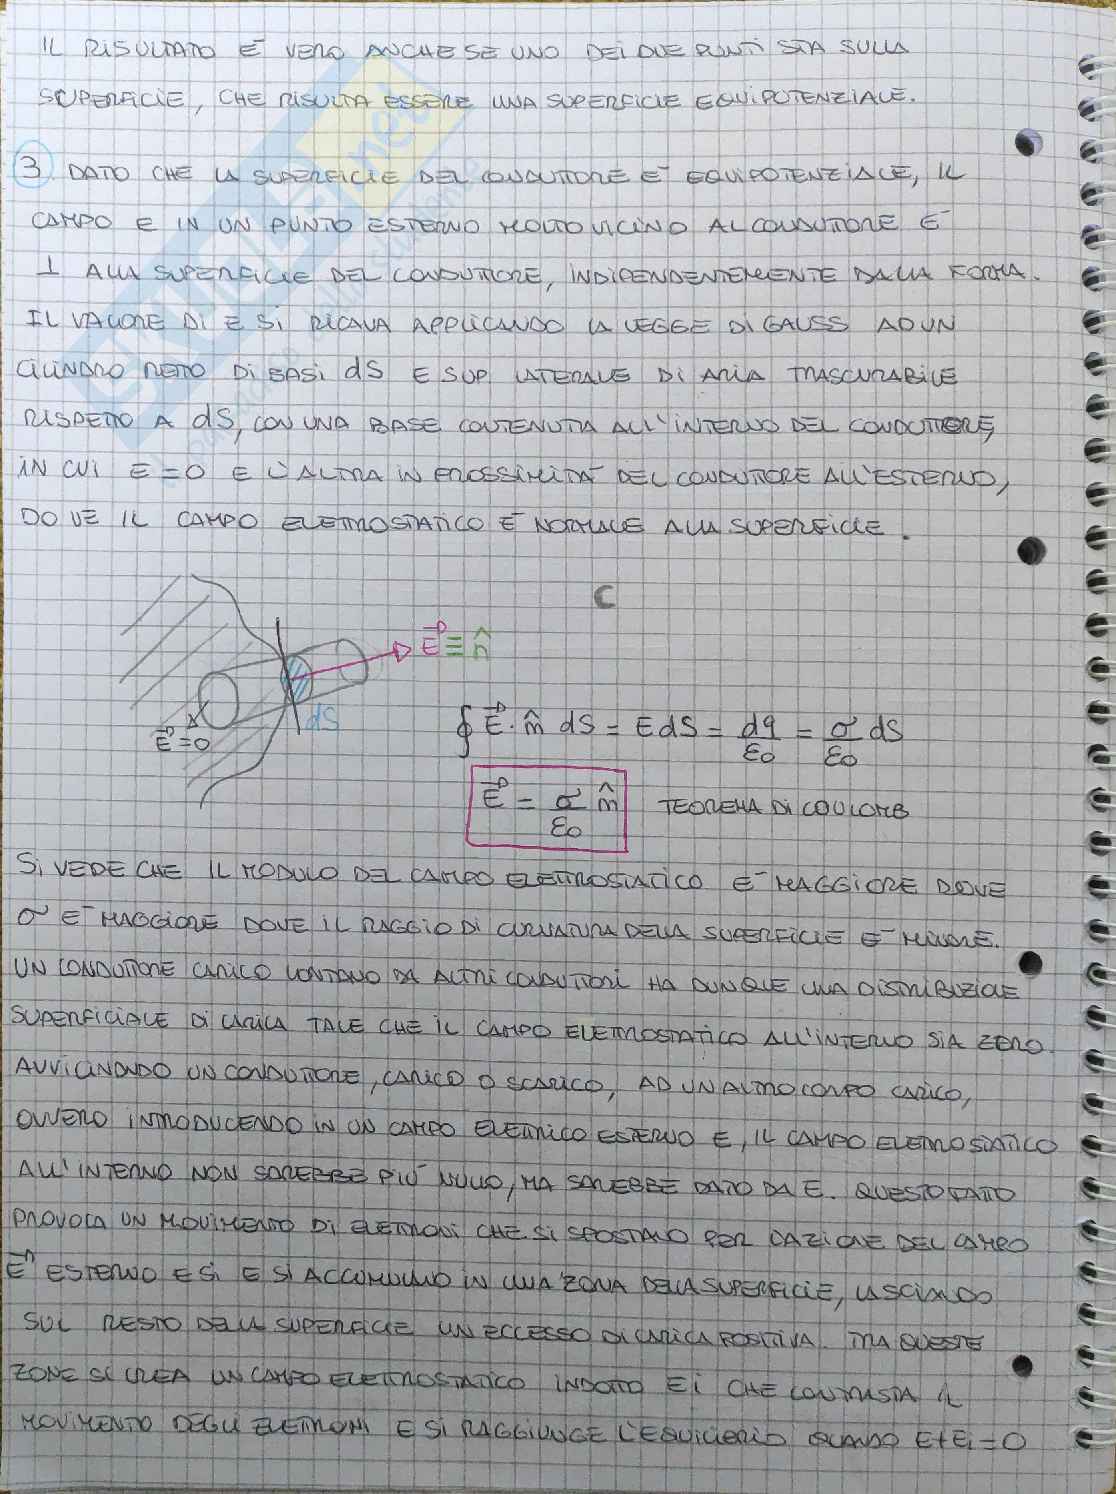 IL RISULTATO È VERO ANCHE SE UNO DEI DUE PUNTI STA SULLA
SUPERFICIE, CHE RISULTA ESSERE UNA SUPERFICIE EQUIPOTENZIALE.
3 DATO CHE LA SUPERFICIE DEL CONDUTTORE È EQUIPOTENZIALE, IL
CAMPO E IN UN PUNTO ESTERNO MOLTO VICINO AL CONDUTTORE È
⊥ ALLA SUPERFICIE DEL CONDUTTORE, INDIPENDENTEMENTE DALLA FORMA.
IL VALORE DI E SI RICAVA APPLICANDO LA LEGGE DI GAUSS AD UN
CILINDRO RETTO DI BASI dS E SUP. LATERALE DI ARIA TRASCURABILE
RISPETTO A dS, CON UNA BASE CONTENUTA ALL'INTERNO DEL CONDUTTORE,
IN CUI E=0 E L'ALTRA IN PROSSIMITÀ DEL CONDUTTORE ALL'ESTERNO,
DOVE IL CAMPO ELETTROSTATICO È NORMALE ALLA SUPERFICIE.
C
E⃗ ≡ n̂
dS
E⃗=0
∮ E⃗ · n̂ dS = E dS = dq/ε0 = σ/ε0 dS
E⃗ = σ/ε0 n̂ TEOREMA DI COULOMB
SI VEDE CHE IL MODULO DEL CAMPO ELETTROSTATICO È MAGGIORE DOVE
σ È MAGGIORE DOVE IL RAGGIO DI CURVATURA DELLA SUPERFICIE È MINORE.
UN CONDUTTORE CARICO LONTANO DA ALTRI CONDUTTORI HA DUNQUE UNA DISTRIBUZIONE
SUPERFICIALE DI CARICA TALE CHE IL CAMPO ELETTROSTATICO ALL'INTERNO SIA ZERO.
AVVICINANDO UN CONDUTTORE, CARICO O SCARICO, AD UN ALTRO CORPO CARICO,
OVVERO INTRODUCENDO IN UN CAMPO ELETTRICO ESTERNO E, IL CAMPO ELETTROSTATICO
ALL'INTERNO NON SAREBBE PIÙ NULLO, MA SAREBBE DATO DA E. QUESTO FATTO
PROVOCA UN MOVIMENTO DI ELETTRONI CHE SI SPOSTANO PER L'AZIONE DEL CAMPO
E⃗ ESTERNO E SI E SI ACCUMULANO IN UNA ZONA DELLA SUPERFICIE, LASCIANDO
SUL RESTO DELLA SUPERFICIE UN ECCESSO DI CARICA POSITIVA. TRA QUESTE
ZONE SI CREA UN CAMPO ELETTROSTATICO INDOTTO Ei CHE CONTRASTA IL
MOVIMENTO DEGLI ELETTRONI E SI RAGGIUNGE L'EQUILIBRIO QUANDO E+Ei=0